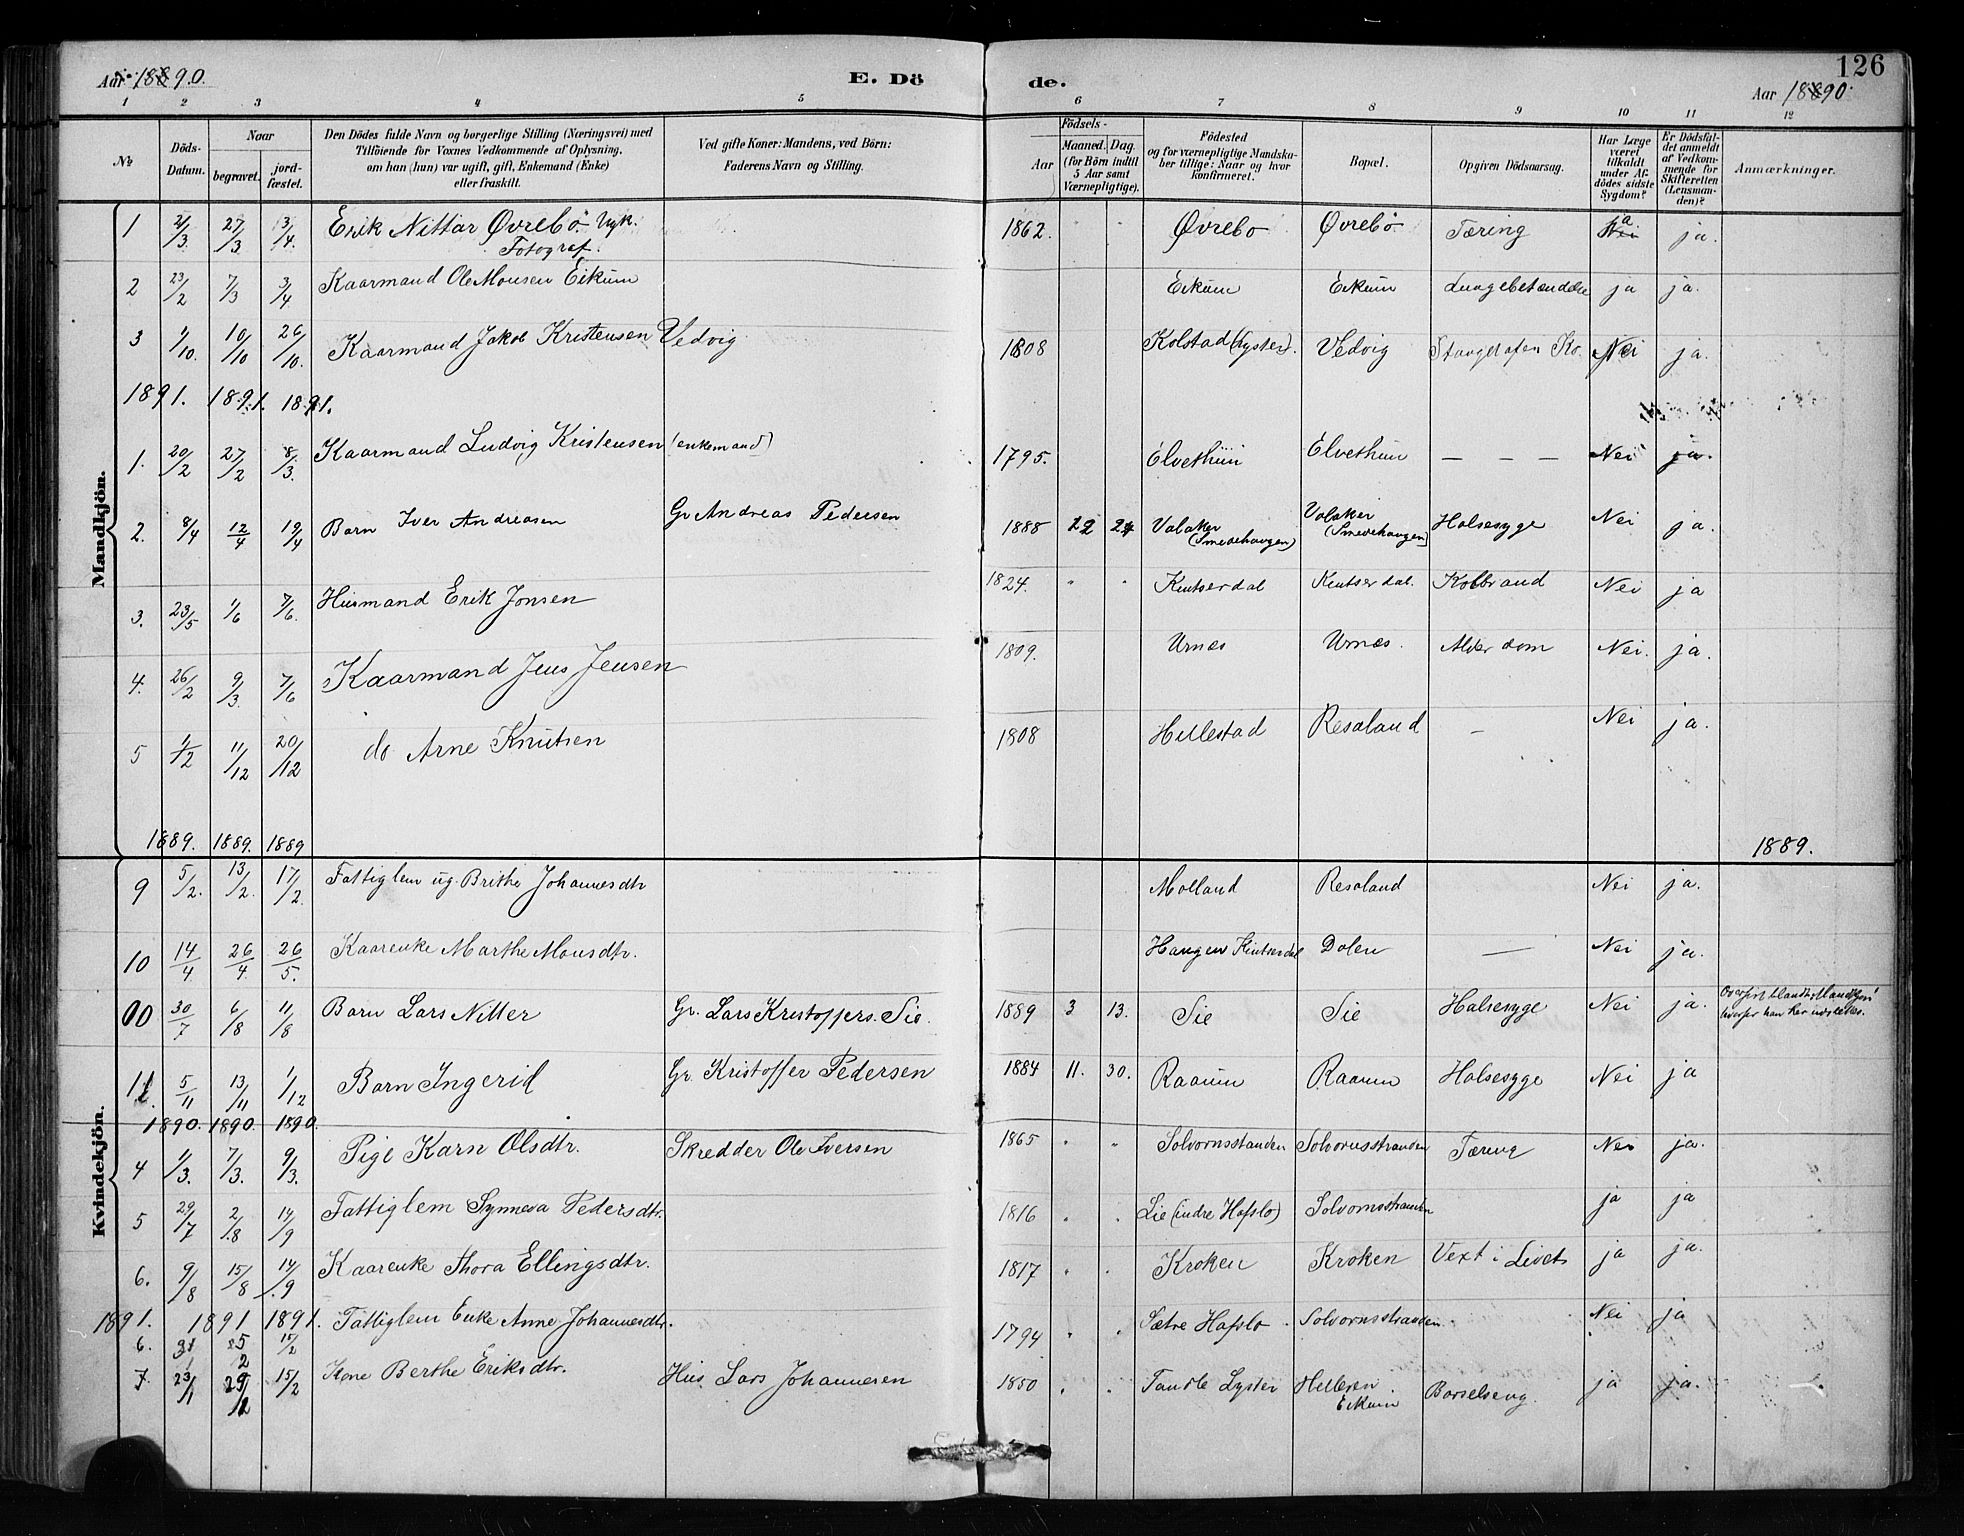 126
Aar 1890. E. Dö de. Aar 1890.
1 2 3 4 5 6 7 8 9 10 11 12
№
Döds-Datum.
Naar
begravet. jord-fæstet.
Den Dödes fulde Navn og borgerlige Stilling (Næringsvei) med Tilföiende for Voxnes Vedkommende af Oplysning, om han (hun) var ugift, gift, Enkemand (Enke) eller fraskilt.
Ved gifte Koner: Mandens, ved Börn: Faderens Navn og Stilling.
Födsels-
Aar Maaned. Dag.
(for Börn indtil 5 Aar samt Værnepligtige).
Födested og for værnepligtige Mandska-ber tillige: Naar og hvor konfirmeret.
Bopæl.
Opgiven Dödsaarsag.
Har Læge været tilkaldt under Af-dödes sidste Sygdom?
Er Dödsfal-det anmeldt af Vedkom-mende for Skifteretten (Lensman-den)?
Anmærkninger.
Mandkjön.
1 2/3 27/3 3/4 Erik Nittar Øvrebö Ugk. Fotograf. 1862. " " Øvrebo Øvrebö Tæring ja.
2 23/2 7/3 3/4 Kaarmand Ole Monsen Eikum Eikum Eikum Lungebetændelse ja ja.
3 1/10. 10/10 26/10. Kaarmand Jakob Kristensen Vedvig 1808 Kolstad (Lyster). Vedvig Nei ja.
1891. 1891. 1891.
1. 20/2 27/2 8/3. Kaarmand Ludvig Kristensen (enkemand) 1795. Elvethun Elvethun — — — Nei ja.
2. 8/4 12/4 19/4 Barn Iver Andreasen Gr Andreas Pedersen 1888 22 24 Valaker (Smedehaugen) Valaker (Smedehaugen) Halsesyge Nei ja.
3. 23/5 1/6 7/6. Husmand Erik Jonsen 1824. " " Kintserdal Kintserdal. Kolbrand Nei ja
4. 26/2 9/3. 7/6 Kaarmand Jens Jensen 1809. Urnes Urnes. Alderdom Nei. ja.
5 1/12 11/12 20/12 do Arne Knutsen 1808 Hillestad Resaland — Nei ja.
1889. 1889. 1889 1889.
Kvindekjön.
9 5/2. 13/2. 17/2. Fattiglem ug. Brithe Johannesdtr Molland Resaland Nei ja.
10 14/4 26/4. 26/5. Kaarenke Marthe Monsdtr. Haugen Kintserdal Dalen — Nei ja.
00 30/7 6/8 11/8 Barn Lars Nitter Gr. Lars Kristoffers. Sie. 1889 3 13. Sie Sie Halsesyge Nei ja. Overfört blandt Mandkjön hvorfor han her udslettes.
11 5/11 13/11 1/12 Barn Ingerid Gr. Kristoffer Pedersen 1884 11. 30. Raaum Raaum Halsesyge Nei ja
1890. 1890. 1890.
4 1/3. 7/3. 9/3. Pige Karn Olsdtr. Skredder Ole Iversen 1865 " " Solvornsstanden Solvornsstranden Tæring Nei ja.
5 29/7 2/8 14/9 Fattiglem Synneva Pedersdtr. 1816 " " Lie (indre Hafslo) Solvornsstranden ja ja
6. 9/8 15/8 14/9 Kaarenke Thora Ellingsdtr. 1817 " " Kroken Kroken Vext i Livet ja ja.
1891. 1891 1891.
6. 31/1 25/2 15/2 Fattiglem Enke Anne Johannesdtr. 1794 " " Sætre Hafslo Solvornsstranden. Nei ja
7. 23/1 29/12 15/2 Kone Berthe Eriksdtr. Hus Lars Johannesen 1850 " " Tandle Lyster Helleren Eikum Barselseng. ja ja.